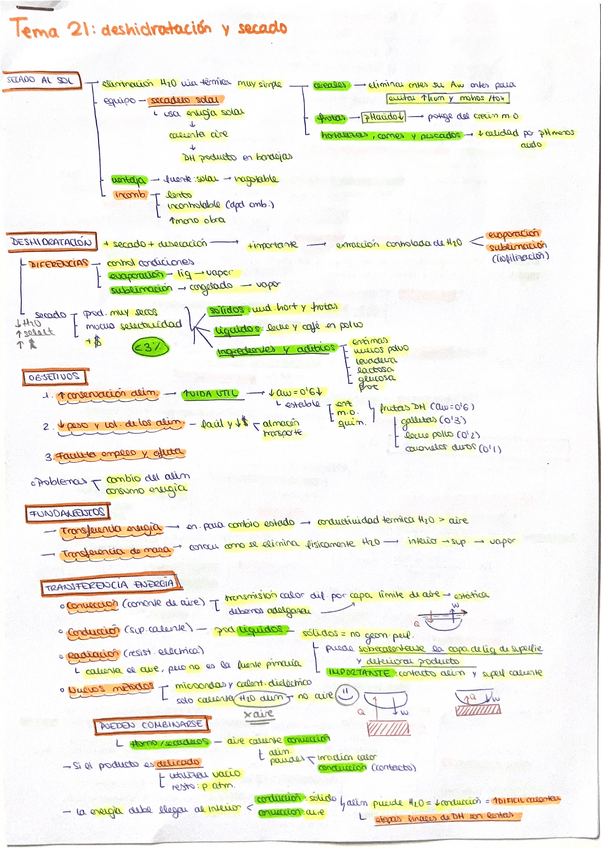 Tema 21: deshidratación y secado
SECADO AL SOL
eliminación H2O via térmica muy simple
equipo → secadero solar
usa energía solar
↓
calienta aire
↓
DH producto en bandejas
cereales → eliminar antes su Aw antes para
frutas → pHácido↓ → protege del crecim m.o
hortalizas, carnes y pescados → ↓calidad por pH menos
ácido
ventaja → fuente: solar → inagotable
inconv. lento
incontrolable (dpd amb.)
↑mano obra
DESHIDRATACIÓN + secado + desecación → +importante → extracción controlada de H2O
evaporación
sublimación
(liofilización)
DIFERENCIAS → control condiciones
evaporación → liq → vapor
sublimación → congelado → vapor
secado
↓H2O
↑ $
prod. muy secos
mucha selectividad
+$
<3%
sólidos: hort y frutas
líquidos: leche y café en polvo
ingredientes y aditivos
enzimas
levadura
lactosa
glucosa
prot
OBJETIVOS
1. ↑conservación alim. → ↑VIDA UTIL → ↓aw=0'6↓
estable
enz
m.o.
quim.
frutas DH (aw=0'6)
galletas (0'3)
leche polvo (0'2)
caramelos duros (0'1)
2. ↓peso y vol. de los alim → fácil y ↓$
almacén
transporte
3. Facilita empleo y oferta
Problemas
cambio del alim
consumo energía
FUNDAMENTOS
→ Transferencia energía → en. para cambio estado → conductividad térmica H2O > aire
→ Transferencia de masa → conocer como se elimina físicamente H2O → interior → sup → vapor
TRANSFERENCIA ENERGÍA
Convección (corriente de aire)
transmisión calor dif. por capa límite de aire → estática
debemos adelgazar
Conducción (sup. caliente) → prod. líquidos → sólidos = no geom. perf.
Radiación (resist. eléctrica)
calienta el aire, pero no es la fuente primaria
puede sobrecalentarse la capa de liq de superficie
y deteriorar producto
IMPORTANTE: contacto alim y superf caliente
Nuevos métodos
microondas y calent. dieléctrico
solo calienta H2O alim → no aire
x aire
Q
W
PUEDEN COMBINARSE
Horno/secaderos → aire caliente convección
alim
paredes
irradian calor
conducción (contacto)
→ Si el producto es delicado
utilizar vacío
resto: p atm.
→ La energía debe llegar al interior
conducción: sólido
convección: aire
alim pierde H2O = ↓conducción = ↑DIFICIL calentar
etapas finales de DH son lentas